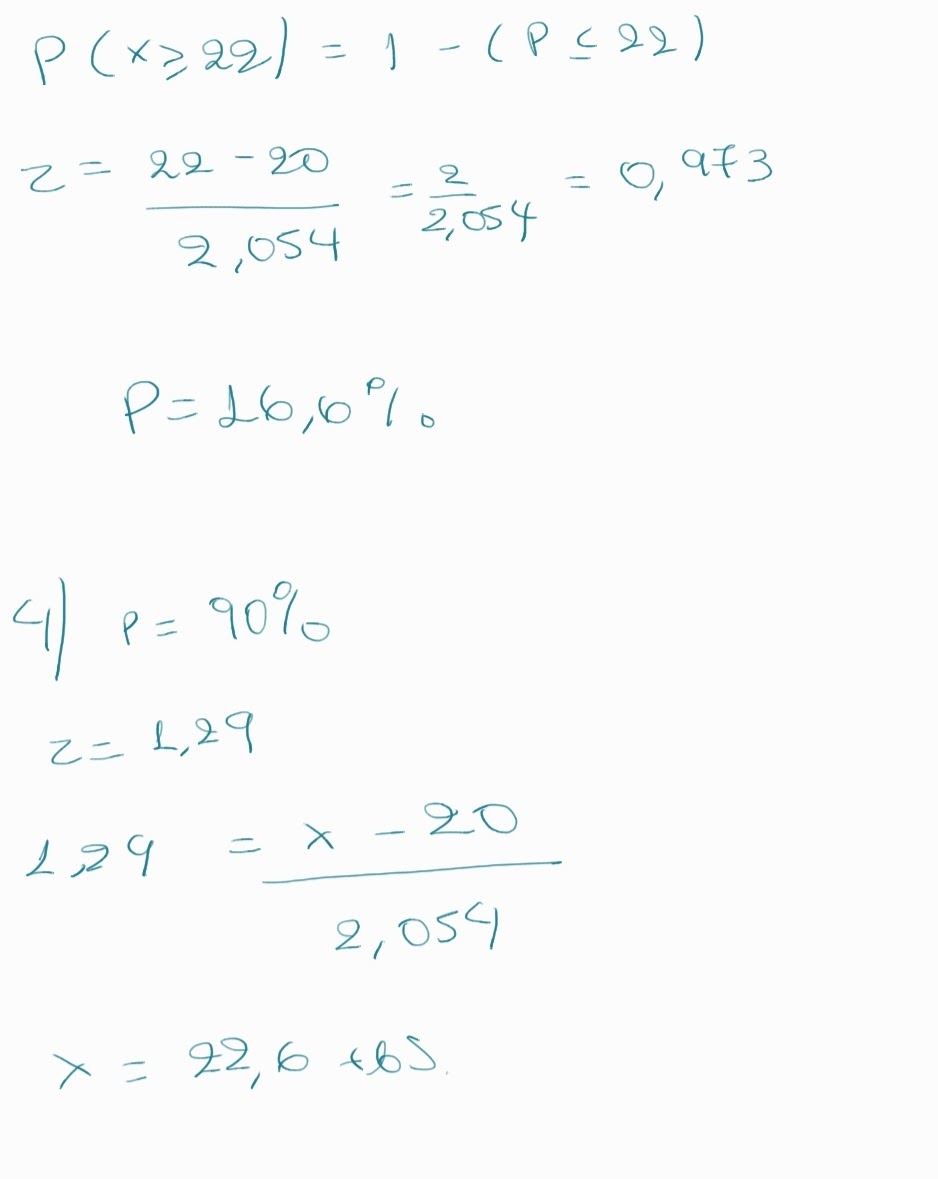 P(x≥22) = 1 - (P ≤ 22)
z = (22 - 20)/2,054 = 2/2,054 = 0,973
P = 16,6%
4) P = 90%
z = 1,29
1,29 = (x - 20)/2,054
x = 22,6